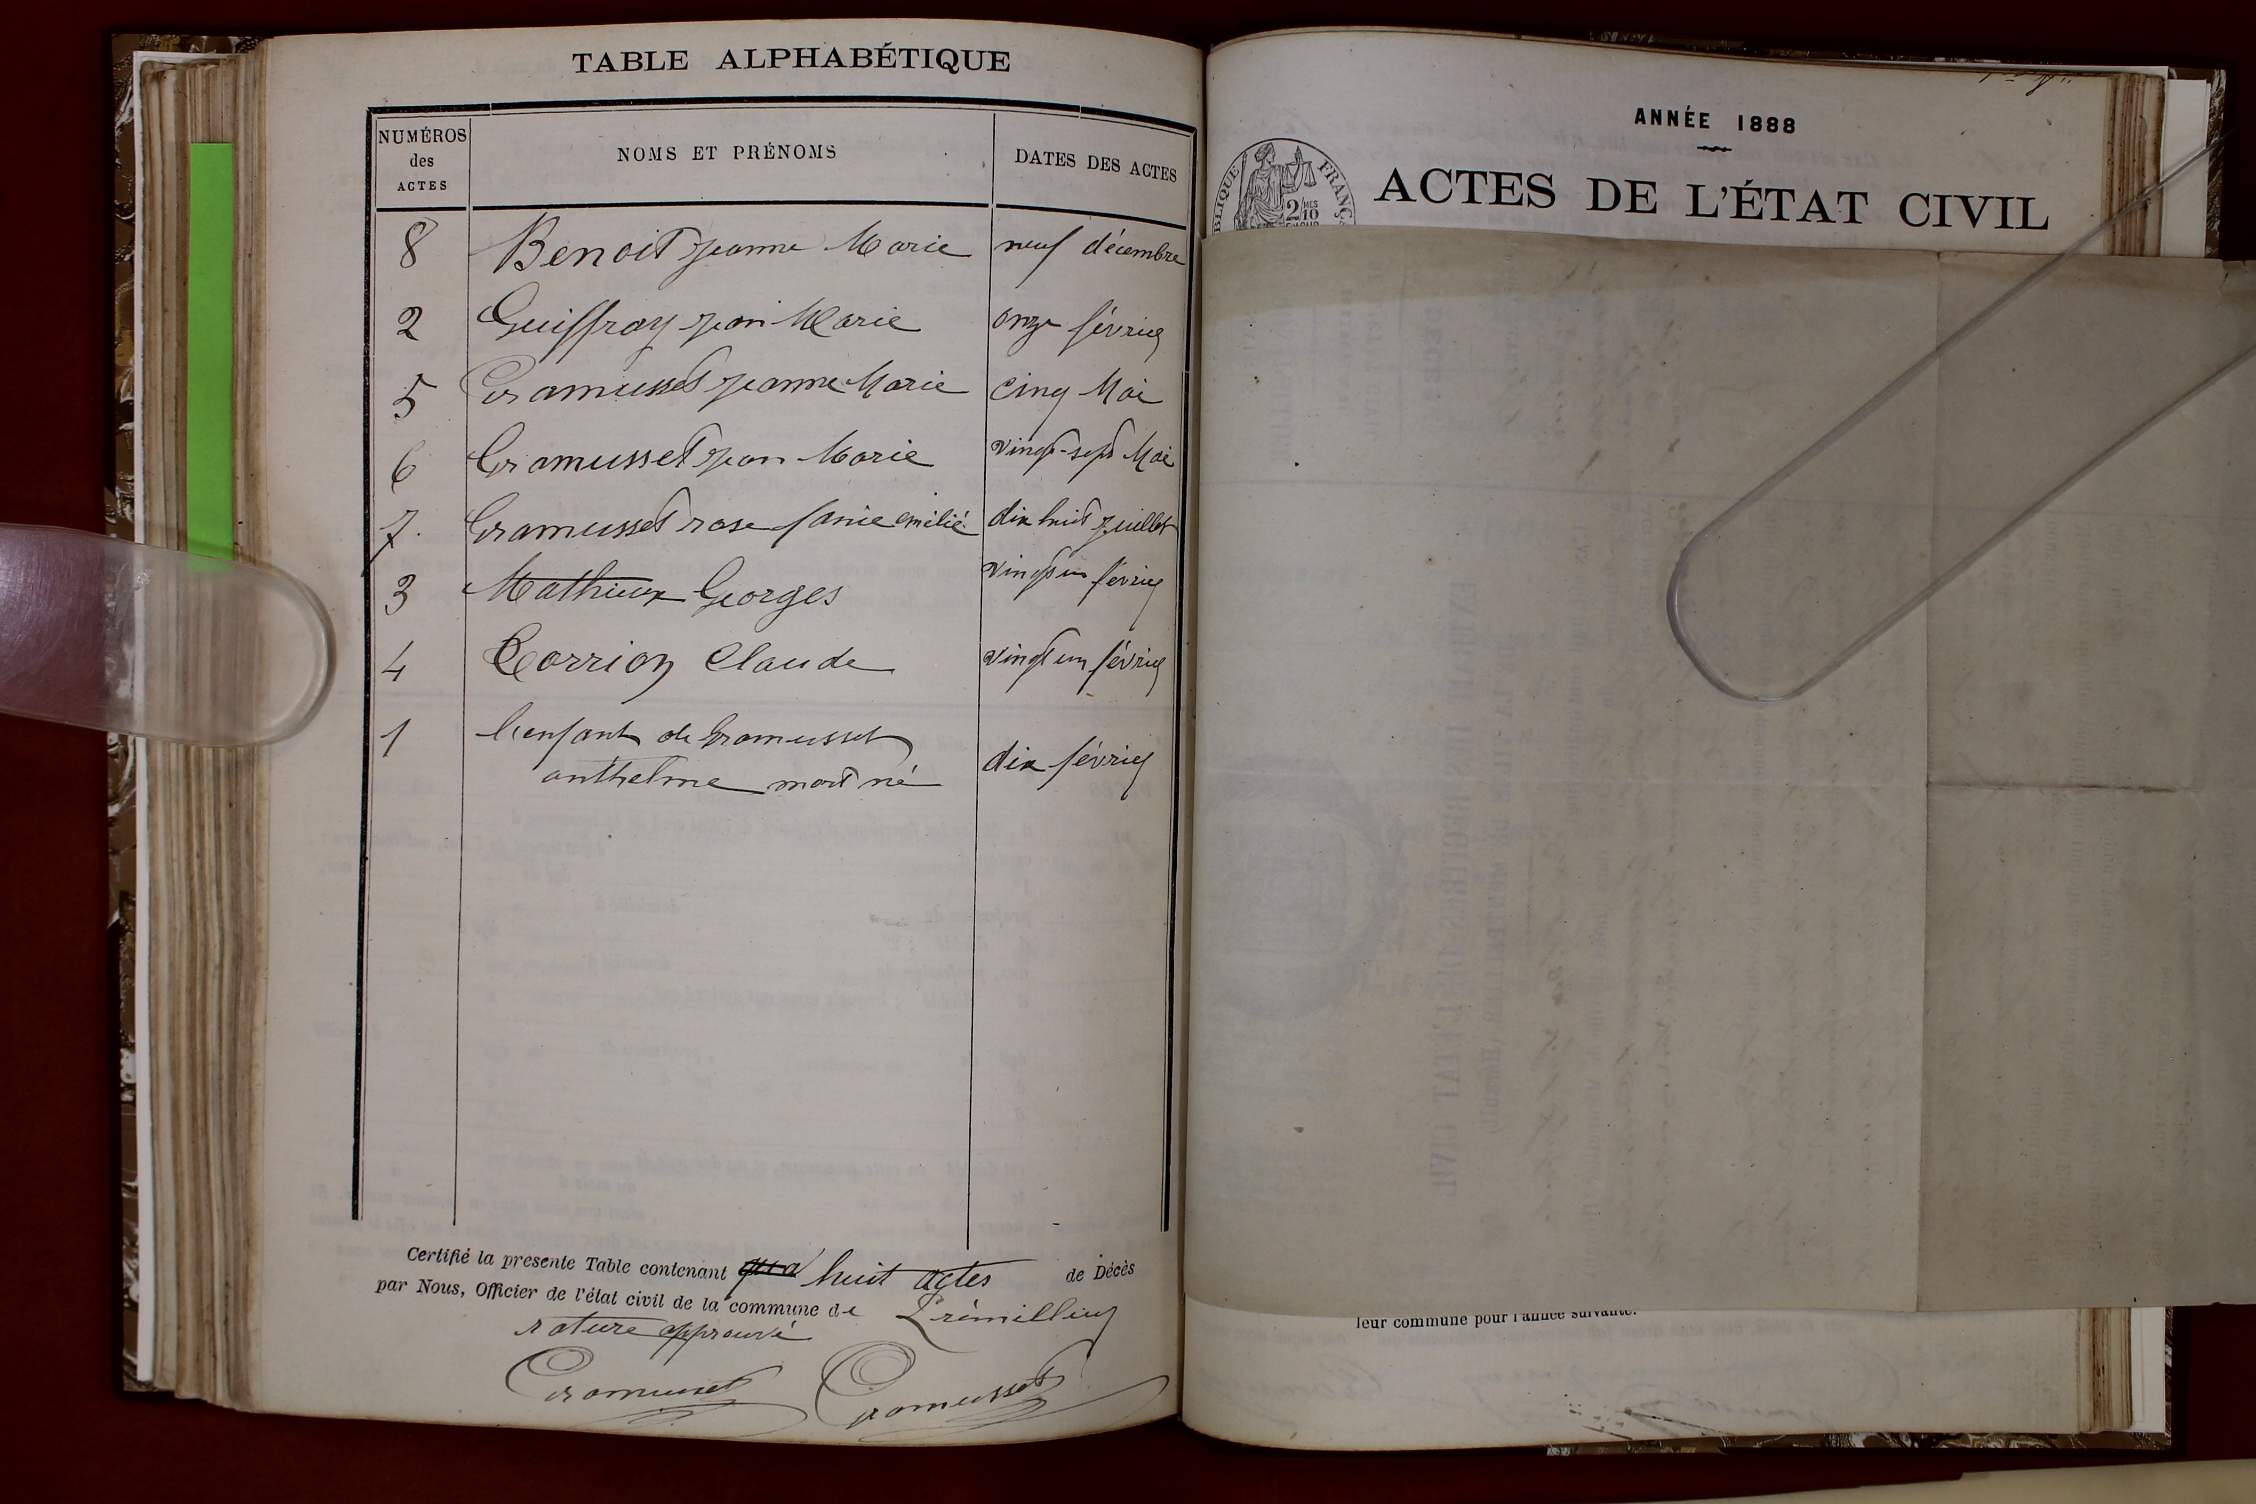 TABLE ALPHABÉTIQUE
NUMÉROS des ACTES NOMS ET PRÉNOMS DATES DES ACTES
8 Benoit jeanne Marie neuf décembre
2 Guiffray jean Marie onze février
5 Gramusset jeanne Marie cinq Mai
6 Gramusset jean Marie vingt-sept Mai
7. Gramusset rose fanie emilié dix huit juillet
3 Mathieux Georges vingt un février
4 Corrion Claude vingt un février
1 L'enfant de Gramusset
anthelme mort né dix février
Certifié la presente Table contenant huit actes de Décès
par Nous, Officier de l'état civil de la commune de Prémillieu
rature approuvé
Gramusset Gramusset
ANNÉE 1888
ACTES DE L'ÉTAT CIVIL
2/10
leur commune pour l'année suivante.